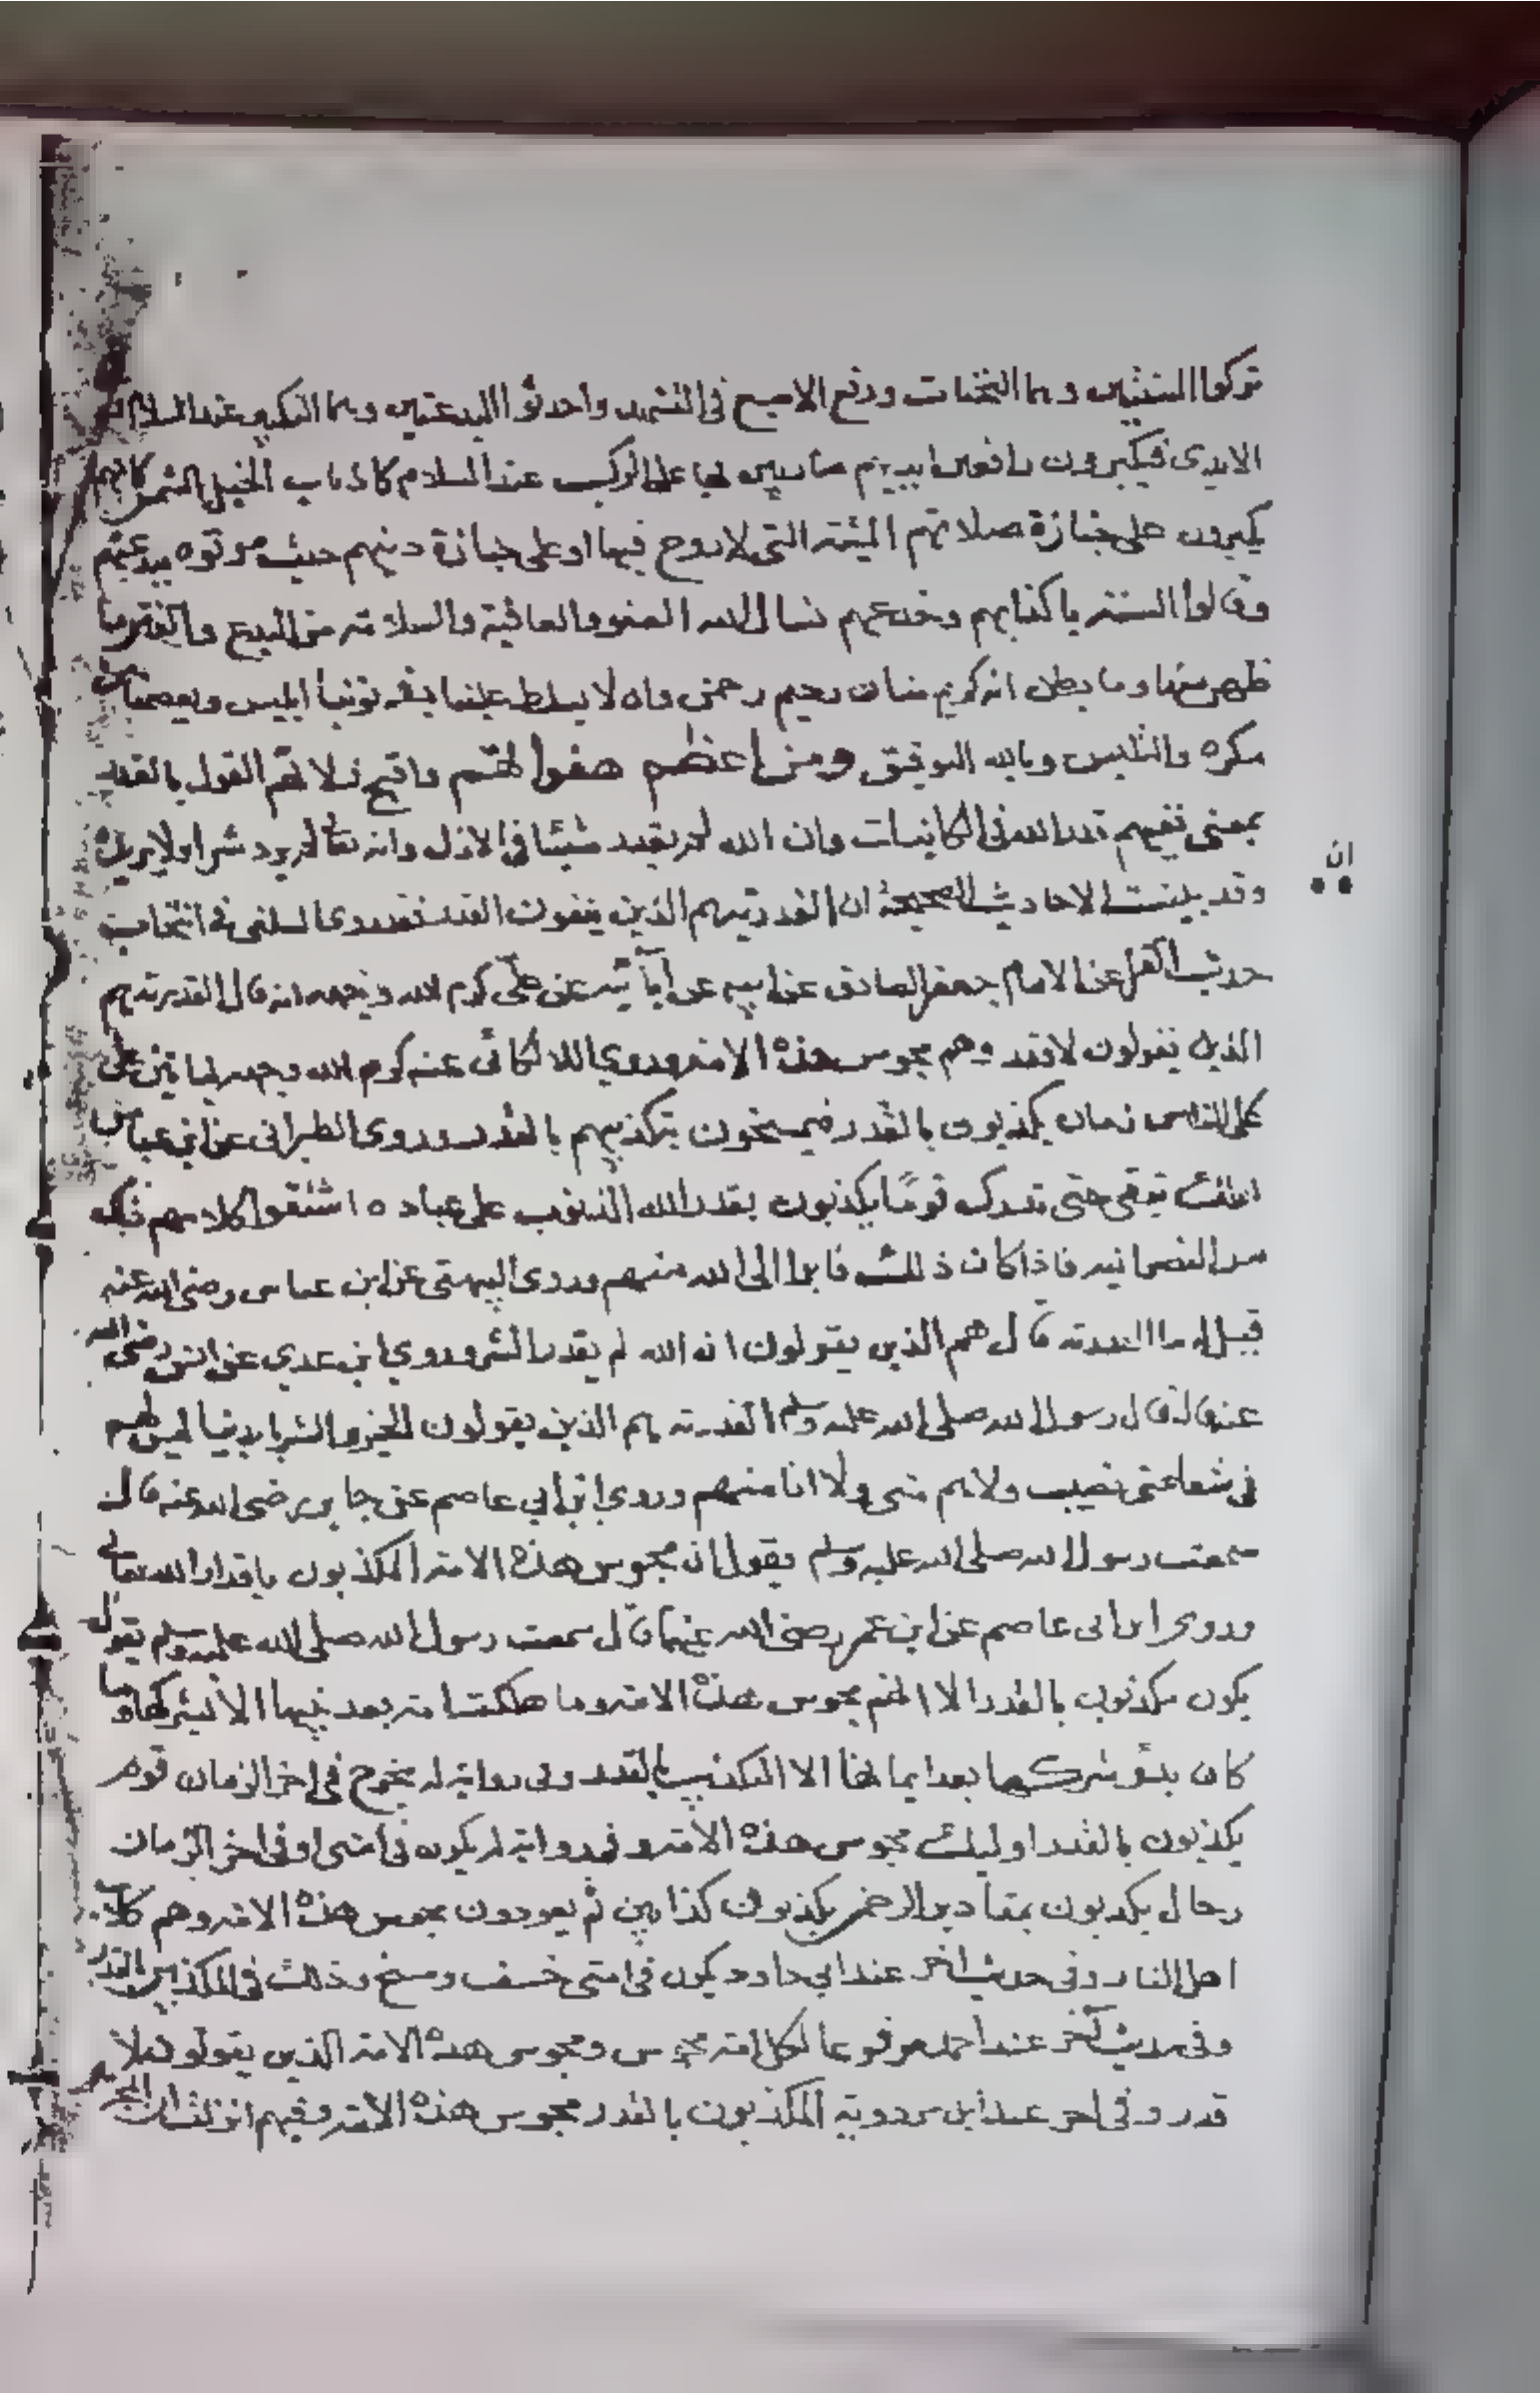 تركوا السنتين وهما التحيات ورفع الاصبع في التشهد واحدثوا البدعتين وهما التكبير عند السلام
الايدي فيكبرون رافعين ايديهم ضاربين بها على الركب عند السلام كاذناب الخيل الشمس كانهم
يكبرون على جنازة صلاتهم الميتة التي لا روح فيها او على جنازة دينهم حيث موتوه ببدعتهم
وقالوا السنة باكذابهم وخدعهم نسال الله العفو والعافية والسلامة من البدع والفتن ما
ظهر منها وما بطن انه كريم منان رحيم رحمن وان لا يسلط علينا بذنوبنا ابليس ويعصمنا من
مكره والتلبيس وبالله التوفيق ومن اعظم هفواتهم واقبح زلاتهم القول بالقدر
بمعنى نفيهم قدر الله في الكاينات وان الله لم يقدر شيئا في الازل وانه تعا لم يرد شرا ولا يريده
ان
وقد بينت الاحاديث الصحيحة ان القدرية هم الذين ينفون القدر فقد روى السلفي في انتخاب
حديث عن الامام جعفر الصادق عن ابيه عن آبائه عن علي كرم الله وجهه انه قال القدرية هم
الذين يقولون لا قدر وهم مجوس هذه الامة وروى اللالكائي عنه كرم الله وجهه لياتين على
على الناس زمان يكذبون بالقدر فيمسخون بتكذيبهم بالقدر وروى الطبراني عن ابن عباس
لعلك تبقى حتى تدرك قوما يكذبون بقدر الله الذنوب على عباده اشتقوا كلامهم ذلك
من النصرانية فاذا كان ذلك فابرا الى الله منهم وروى البيهقي عن ابن عباس رضي الله عنه
قيل له ما القدرية قال هم الذين يقولون ان الله لم يقدر الشر وروى ابن عدي عن انس رضي الله
عنه قال قال رسول الله صلى الله عليه وسلم القدرية هم الذين يقولون الخير والشر بايدينا ليس لهم
في شفاعتي نصيب ولا هم مني ولا انا منهم وروى ابن ابي عاصم عن جابر رضي الله عنه قال
سمعت رسول الله صلى الله عليه وسلم يقول ان مجوس هذه الامة المكذبون باقدار الله تعالى
وروى ابن ابي عاصم عن ابن عمر رضي الله عنهما قال سمعت رسول الله صلى الله عليه وسلم يقول
يكون مكذبون بالقدر الا انهم مجوس هذه الامة وما هلكت امة بعد نبيها الا بشركها وما
كان بدؤ شركها بعد ايمانها الا التكذيب بالقدر وفي رواية له يخرج في اخر الزمان قوم
يكذبون بالقدر اوليك مجوس هذه الامة وفي رواية له يكون في امتي او في اخر الزمان
رجال يكذبون بمقادير الرحمن يكذبون كذابين ثم يعودون مجوس هذه الامة وهم كلاب
اهل النار وفي حديث اخر عند ابي داود يكون في امتي خسف ومسخ وذلك في المكذبين بالقدر
وفي حديث آخر عند احمد مرفوعا لكل امة مجوس ومجوس هذه الامة الذين يقولون لا
قدر وفي اخر عند ابن مردوية المكذبون بالقدر مجوس هذه الامة وفيهم انزلت ان